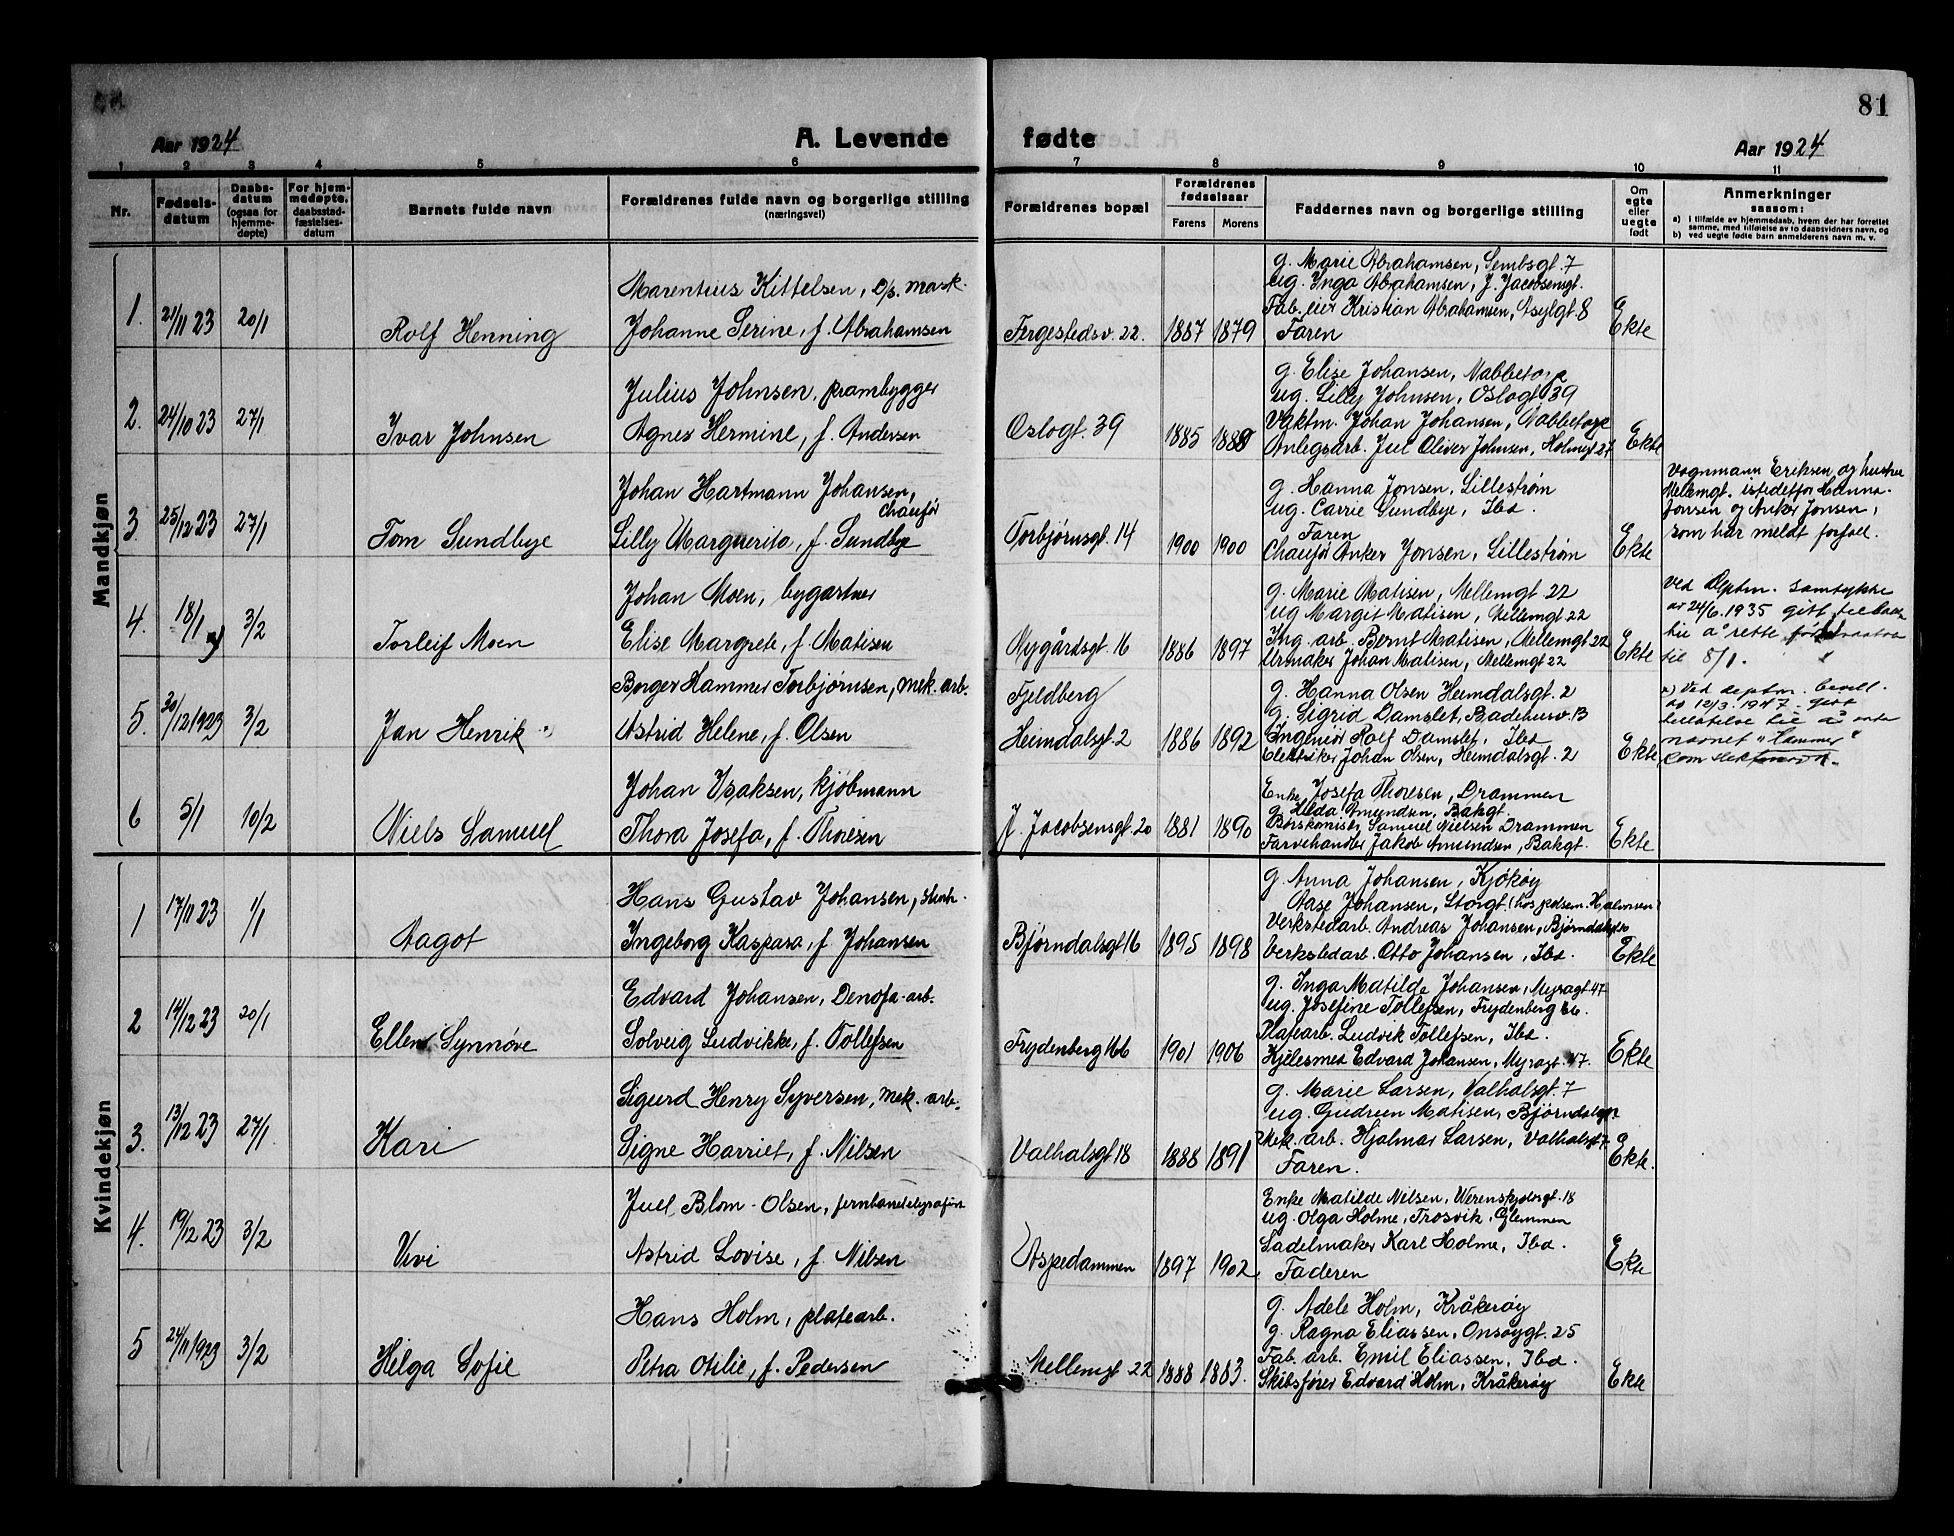 81
Aar 1924
A. Levende fødte
Aar 1924
1 2 3 4 5 6 7 8 9 10 11
Nr.
Fødsels-
datum
Daabs-
datum
(ogsaa for
hjemme-
døpte)
For hjem-
medøpte,
daabsstad-
fæstelses-
datum
Barnets fulde navn
Forældrenes fulde navn og borgerlige stilling
(næringsvei)
Forældrenes bopæl
Forældrenes
fødselsaar
Farens Morens
Faddernes navn og borgerlige stilling
Om
egte
eller
uegte
født
Anmerkninger
saasom:
a) i tilfælde av hjemmedaab, hvem der har forrettet
samme, med tilføielse av to daabsvidners navn, og
b) ved uegte fødte barn anmelderens navn m. v.
Mandkjøn
1. 21/11 23 20/1
Rolf Henning
Marentius Kittelsen, D/s. mask.
Johanne Serine, f. Abrahamsen
Fergestedsv. 22. 1887 1879
g. Marie Abrahamsen, Sembsgt. 7
ug. Inga Abrahamsen, J. Jacobsensgt.
Fab. eier Kristian Abrahamsen, Asylgt. 8
Faren
Ekte
2. 24/10 23 27/1
Ivar Johnsen
Julius Johnsen, prambygger
Agnes Hermine, f. Andersen
Oslogt. 39 1885
g. Elise Johansen, Nabbetorp
ug. Lilly Johnsen, Oslogt 39
Vaktm. Johan Johansen, Nabbetorp
Anlegsarb. Jul Oliver Johnsen, Holmegt 27
Ekte
3. 25/12 23 27/1
Tom Sundbye
Johan Hartmann Johansen,
Chaufør
Lilly Marguerita, f. Sundbye
Torbjørnsgt. 14 1900 1900
g. Hanna Jonsen, Lillestrøm
ug. Carrie Sundbye, Ibd.
Faren
Chaufør Anker Jonsen, Lillestrøm
Ekte
Vognmann Eriksen og hustru
Mellemgt. istedetfor Hanna
Jonsen og Anker Jonsen,
som har meldt forfall.
4. 18/1 3/2
Torleif Moen
Johan Moen, bygartner
Elise Margrete, f. Matisen
Nygårdsgt. 16 1886 1897
g. Marie Matisen, Mellemgt 22
ug Margit Matisen, Mellemgt 22
Ing. arb. Bernt Matisen, Mellemgt 22
Urmaker Johan Matisen, Mellemgt 22
Ekte
Ved Deptm. samtykke
av 24/6. 1935 gitt tillad.
til å rette
til 8/1.
5. 30/12 1923 3/2
Jan Henrik
Borger Hammer Torbjørnsen, mek. arb.
Astrid Helene, f. Olsen
Fjeldberg
Heimdalsgt. 2 1886 1892
g. Hanna Olsen Heimdalsgt. 2
g. Sigrid Damslet, Badehusv. 13
Ingeniør Rolf Damslet, Ibd
Elektriker Johan Olsen, Heimdalsgt. 2
Ekte
Ved deptm. bevill.
av 12/3. 1947 gitt
tillatelse til å
navnet "Hammer"
som slektsnavn.
6 5/1 10/2
Niels Samuel
Johan Isaksen, kjøbmann
Thora Josefa, f. Thoresen
J. Jacobsensgt. 20 1881 1890
Enke Josefa Thoresen, Drammen
g. Hilda Amundsen, Bakgt.
Børskomisr. Samuel Nielsen Drammen
Farvehandler Jakob Amundsen, Bakgt.
Ekte
Kvindekjøn
1 17/11 23 1/1
Aagot
Hans Gustav Johansen,
Ingeborg Kaspara, f Johansen
Bjørndalsgt 16 1895 1898
g. Anna Johansen, Kjøkøy
Aase Johansen, Storgt.
Verkstedarb. Andreas Johansen,
Verkstedarb. Otto Johansen, Ibd.
Ekte
2 14/12 23 20/1
Ellen Synnøve
Edvard Johansen, Denofa-arb.
Solveig Ludvikke, f. Tollefsen
Frydenberg 166 1901 1906
g. Inga Matilde Johansen, Myragt 47
ug. Josefine Tollefsen, Frydenberg
Platearb. Ludvik Tollefsen, Ibd.
Kjelesmed Edvard Johansen, Myragt. 47.
Ekte
3. 13/12 23 27/1
Kari
Sigurd Henry Syversen, mek. arb.
Signe Harriet, f. Nilsen
Valhalsgt 18 1888 1891
g. Marie Larsen, Valhalsgt. 7
ug. Gudrun Matisen,
Mek. arb. Hjalmar Larsen, Valhalsgt 7
Faren.
Ekte.
4. 19/12 23 3/2
Vivi
Juel Blom-Olsen, jernbanetelegrafist
Astrid Lovise, f. Nilsen
Aspedammen 1897 1902
Enke Matilde Nilsen, Werenskjoldsgt. 18
ug. Olga Holme, Trosvik, Glemmen
Sadelmaker Karl Holme, Ibd.
Faderen
Ekte
5 24/11 1923 3/2
Helga Sofie
Hans Holm, platearb.
Petra Otilie, f. Pedersen
Mellemgt 22 1888 1883.
g. Adele Holm, Kråkerøy
g. Ragna Eliassen, Onsøygt. 25
Fab. arb. Emil Eliassen, Ibd.
Skibsfører Edvard Holm, Kråkerøy
Ekte